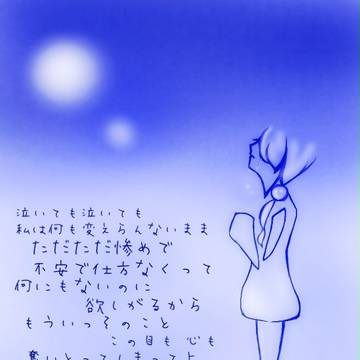 泣いても泣いても
私は何も変えらんないまま
ただただ惨めで
不安で仕方なくって
何にもないのに
欲しがるから
もういっそのこと
この目も心も
奪いとってしまってよ